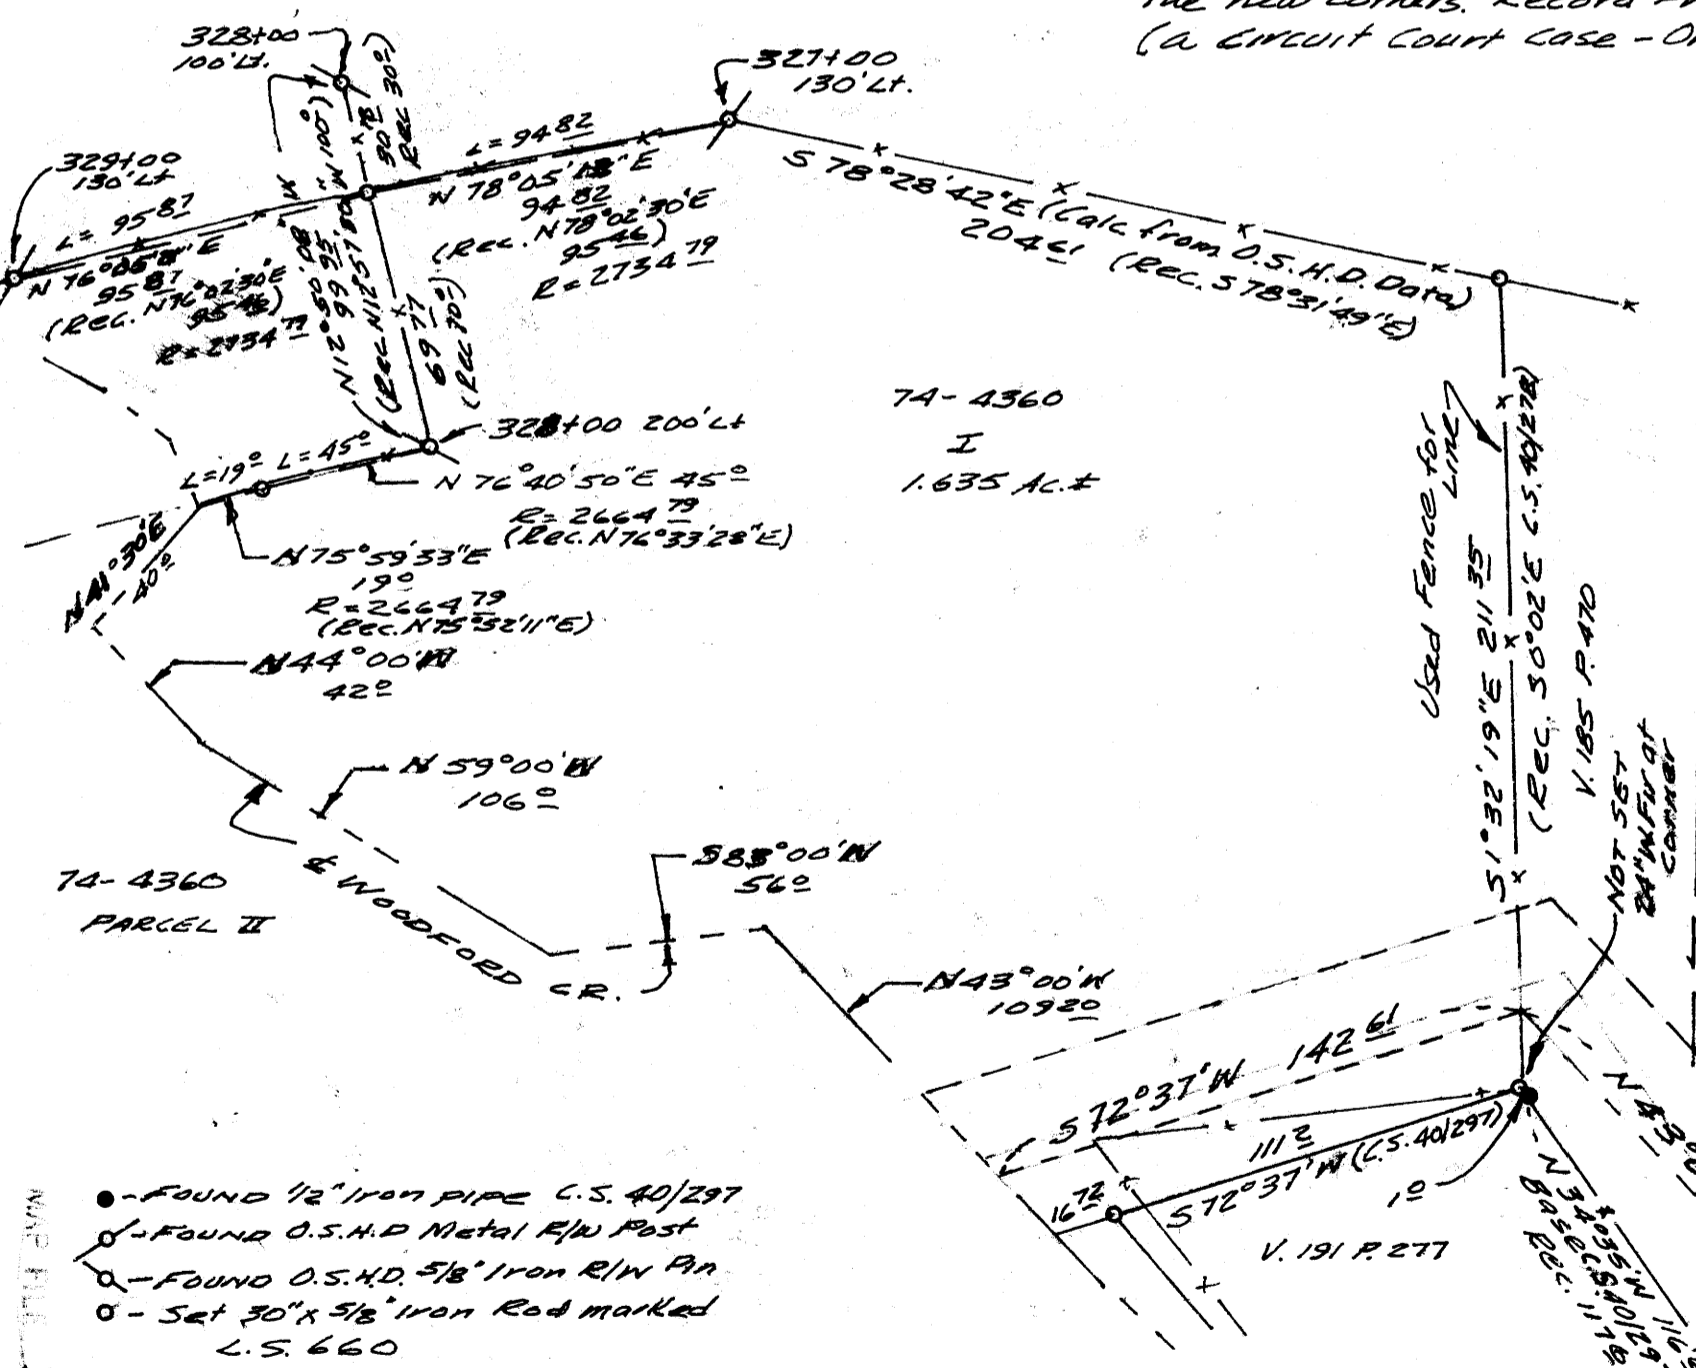 the new corners. Record
(a Circuit Court Case -
328+00
100' Lt.
327+00
130' Lt.
329+00
130' Lt
L= 95 87
N 76°05'18" E
95 87
(Rec. N76°02'30"E
95 46)
R= 2734 79
N12°50'08" W
99 95
(Rec. N12°57'30"W 100°)
90 18
Rec 30°)
L= 94 82
N 78°05'18" E
94 82
(Rec. N78°02'30"E
95 46)
R= 2734 79
69 77
(Rec 70°)
S 78°28'42"E (Calc from O.S.H.D. Data)
204 61 (Rec. S 78°31'49"E)
74- 4360
I
1.635 Ac.±
328+00 200' Lt
L=19° L= 45°
N 76°40'50"E 45°
R= 2664 79
(Rec. N76°33'28"E)
N 75°59'53"E
19°
R= 2664 79
(Rec. N75°52'11"E)
N 41°30'E
40°
N44°00'W
42°
N 59°00'W
106°
S83°00'W
56°
N43°00'W
109 20
74- 4360
PARCEL II
℄ WOODFORD CR.
Used Fence for
LINE
S1°32'19"E 211 35
(Rec. S0°02'E C.S. 40/278)
V. 185 P. 470
NOT SET
24" W. Fir at
corner
S 72°37'W 142 61
111 2
S 72°37'W (C.S. 40/297)
16 72
1°
V. 191 P. 277
N 34°035'W 116
Rec. 11
● - FOUND 1/2" Iron pipe C.S. 40/297
- FOUND O.S.H.D Metal R/W Post
- FOUND O.S.H.D. 5/8" Iron R/W Pin
o - Set 30" x 5/8" Iron Rod marked
L.S. 660
MAP FILE